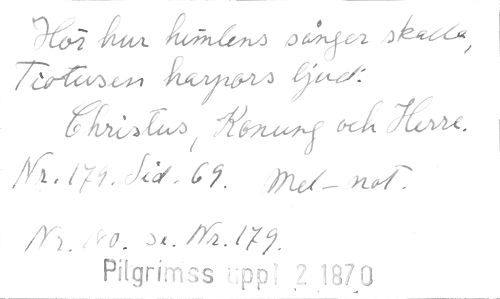 Hör hur himlens sånger skalla,
Tiotusen harpors ljud:
Christus, Konung och Herre.
Nr. 179. Sid. 69. Mel-not.
Nr. 180. se. Nr. 179.
Pilgrimss uppl 2 1870